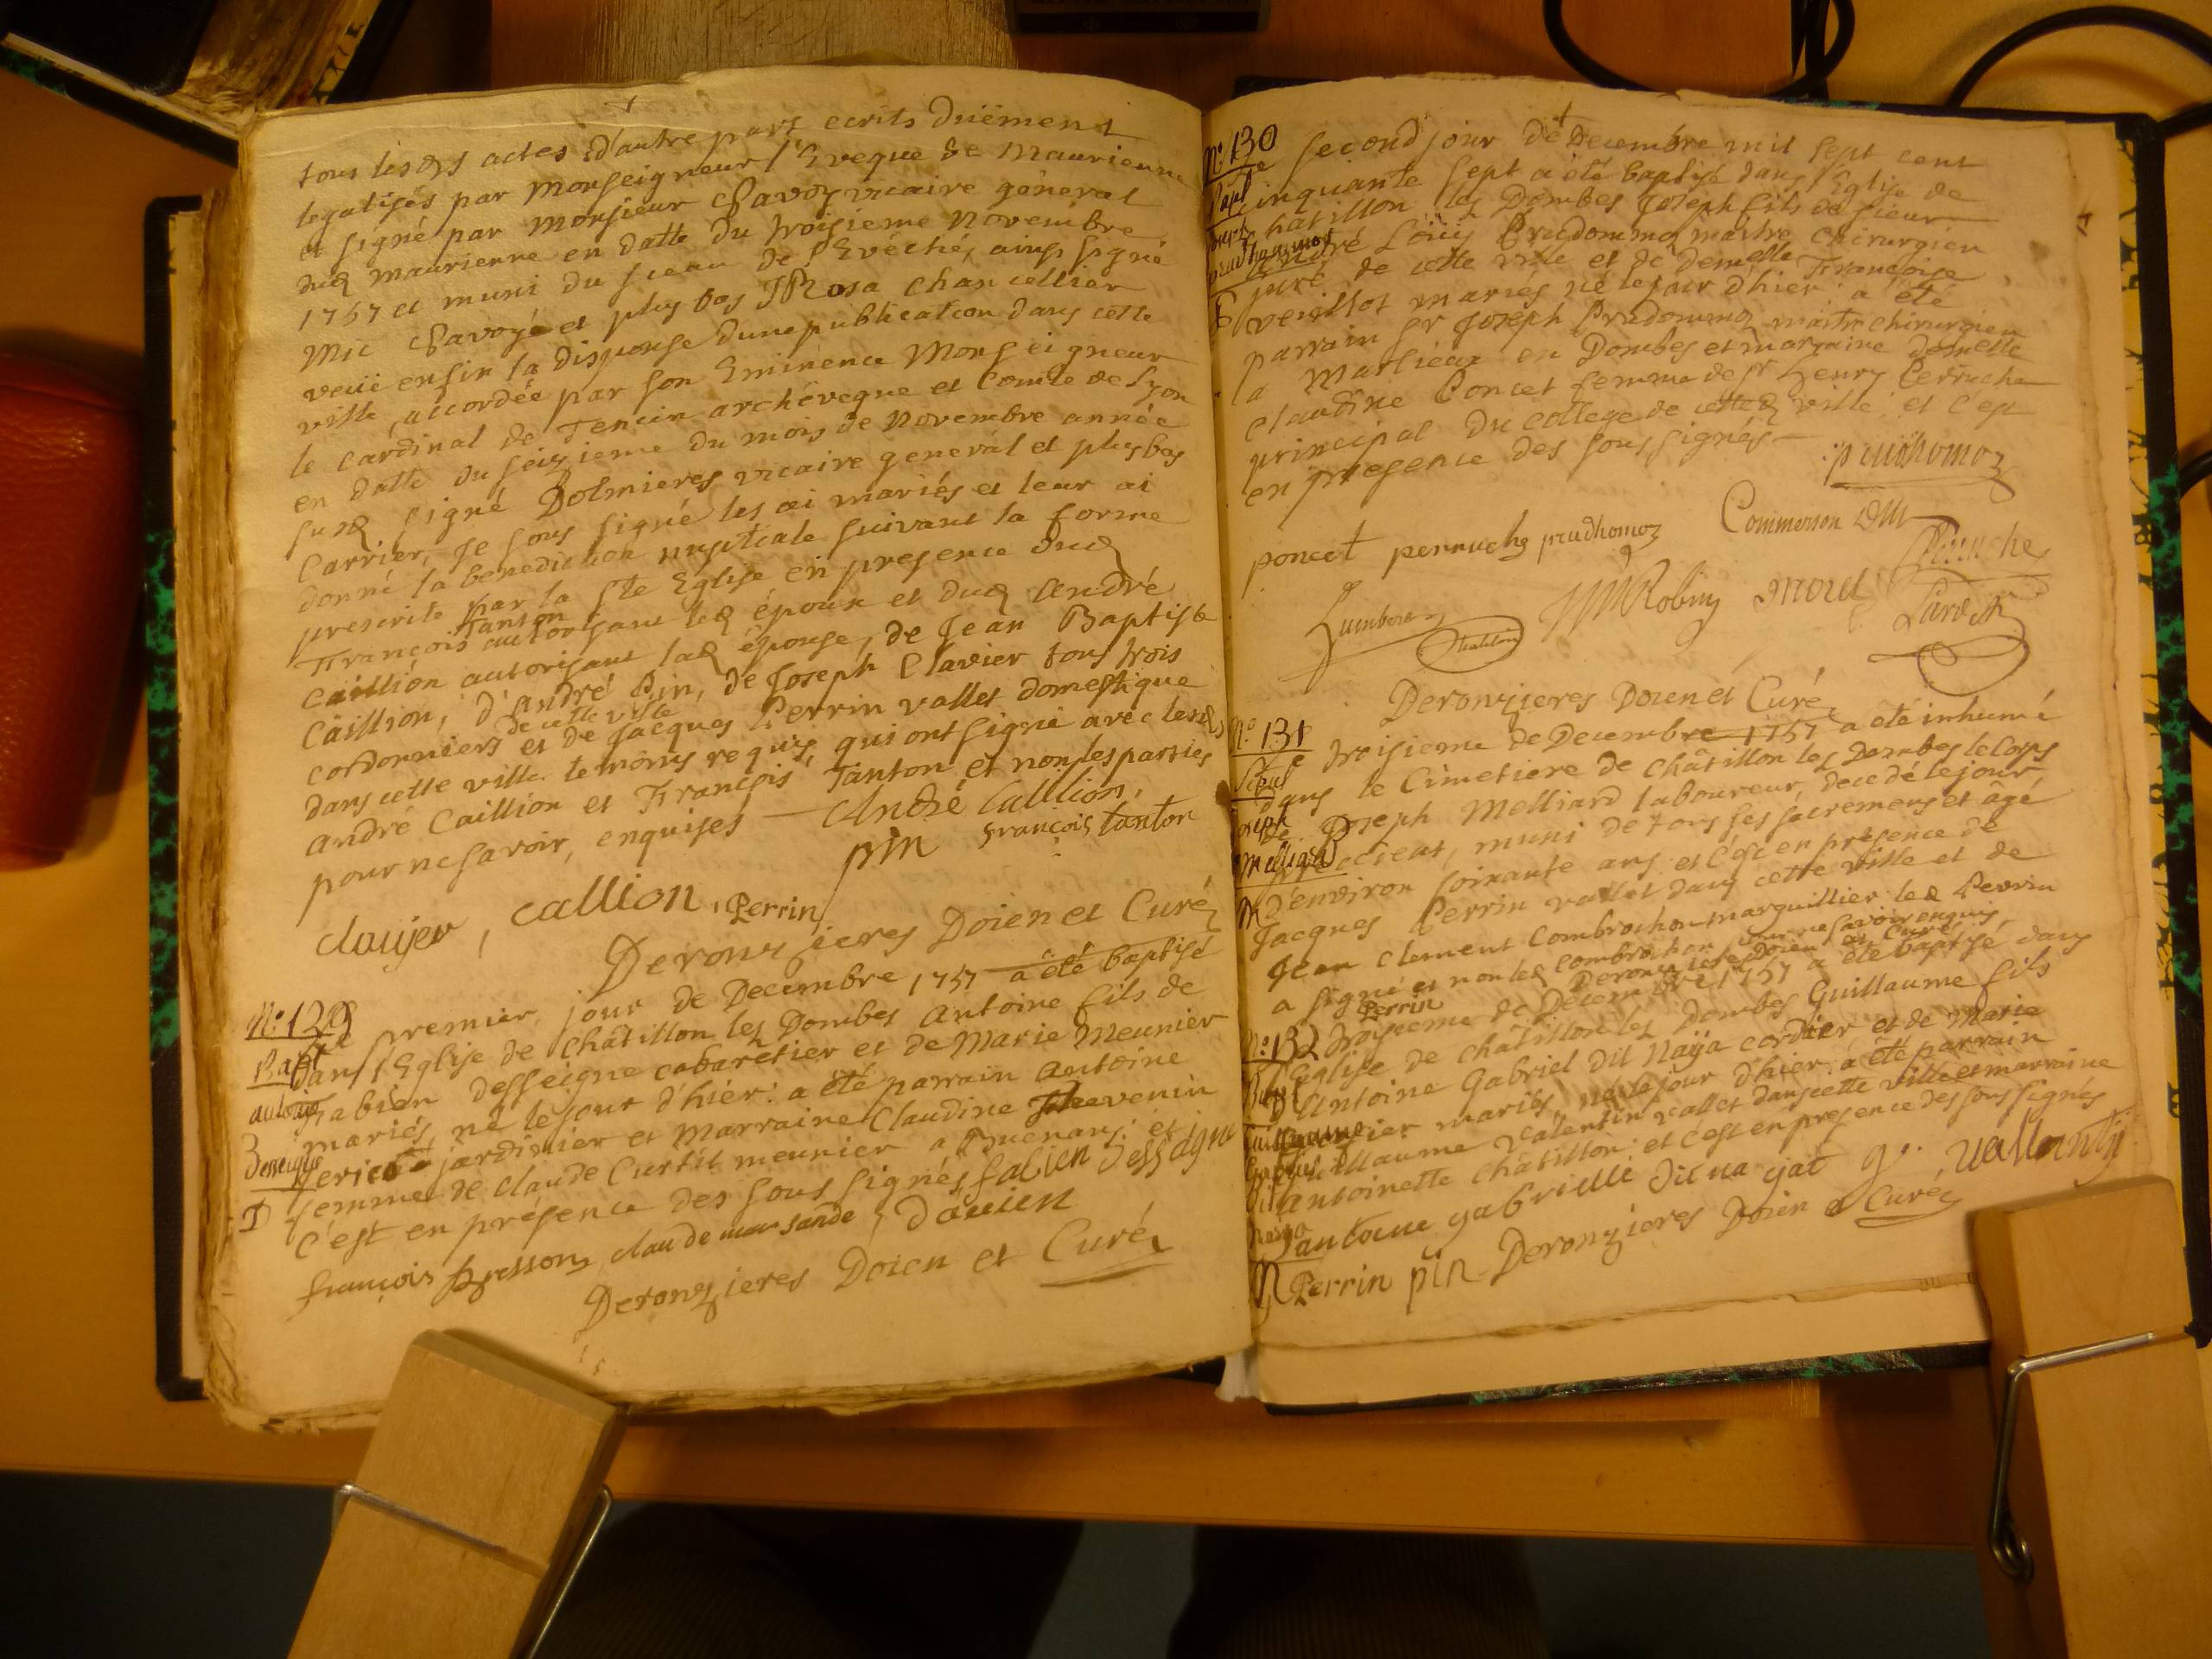 tous lesds actes d'autre part ecrits duëment
legalisés par Monseigneur l'Eveque de Maurienne
et signé par Monsieur Savoy vicaire géneral
dud Maurienne en datte du troisieme Novembre
1757 et muni du sceau de l'Eveché, ainsi signé
Mic Savoye et plus bas JRosa chancellier
veüe enfin la dispense dune publication dans cette
ville, accordée par son Eminence Monseigneur
le Cardinal de Tencin archévêque et Comte de Lyon
en datte du seizieme du mois de Novembre année
susd signé Dolmieres vicaire general et plus bas
Carrier, Je sous signé les ai mariés et leur ai
donné la benediction nuptiale suivant la forme
prescrite par la Ste Eglise en presence dud
François Tanton autorisant led époux et dud André
Caillion autorisant lad épouse, de Jean Baptiste
Caillion, d'André Pin, de Joseph Clavier tous trois
cordonniers de cette ville et de Jacques Perrin vallet domestique
dans cette ville temoins requis, qui ont signé avec lesd
André Caillion et François Tanton et non les parties
pour ne savoir, enquises — André Callion,
pin françois tanton
clavjer, callion, Perrin
Deronzieres Doien et Curé
N° 129
Bapt
antoine
Desseigne
Le premier jour de Decembre 1757 a été baptisé
dans l'Eglise de châtillon les Dombes Antoine fils de
fabien desseigne cabaretier et de Marie Meunier
mariés, né le jour d'hier: a été parrain Antoine
jardinier et Marraine Claudine Thevenin
femme de claude Curtil meunier a et
c'est en présence des sous signés fabien dessaigne
françois bresson, claude marsande, davien
Deronzieres Doien et Curé
N° 130
Bapt
Joseph
prudhommoz
Le second jour de Decembre mil sept cent
cinquante sept a été baptisé dans l'Eglise de
chatillon les Dombes Joseph fils de sieur
André Loüis Prudommoz maitre chirurgien
juré de cette ville et de Demelle Françoise
veillot mariés né le jour d'hier: a été
parrain Sr Joseph Prudommoz maitre chirurgien
a Marlieux en Dombes et marraine demelle
claudine Poncet femme de Sr henry Perruche
principal du college de cetted ville: et c'est
en presence des sous signés —
prudhomoz
poncet perruche prudhomoz Commerson DM
Perruche
Lumbert JMRobin Morel
Deronzieres Doien et Curé
N° 131
Sepul
Joseph
Melliard
Le troisieme de Decembre 1757 a été inhumé
dans le Cimetiere de châtillon les Dombes le Corps
de Joseph Melliard laboureur, decedé le jour
precedent, muni de tous ses sacremens et âgé
d'environ soixante ans et c'est en présence de
Jacques Perrin vallet dans cette ville et de
Jean Clement Combrochon marguillier led Perrin
a signé et non led combrochon pour ne savoir enquis,
Perrin Deronzieres Doien et Curé
N° 132
Bapt
Guillaume
Le troisieme de Decembre 1757 a été baptisé dans
l'Eglise de châtillon les Dombes Guillaume fils
d'Antoine Gabriel dit Naÿa cordier et de Marie
mariés, né le jour d'hier: a été parrain
Guillaume Valentin vallet dans cette ville et marraine
antoinette châtillon: et c'est en présence des sous signés
antoine gabrielle dit na yat g. vallantin
Perrin pin Deronzieres Doien et Curé